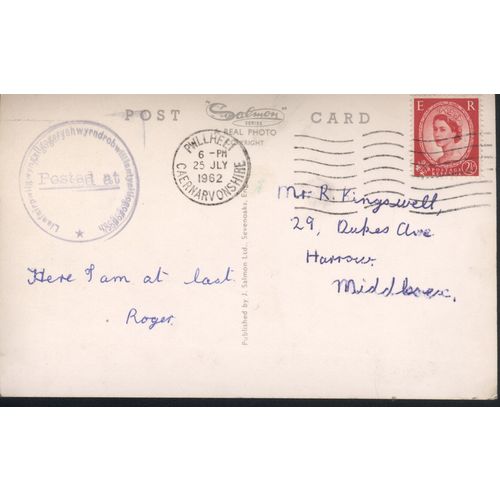 POST "Salmon" CARD
SERIES
REAL PHOTO
COPYRIGHT
Posted at
PWLLHELI
6 - PM
25 JLY
1962
CAERNARVONSHIRE
E R
Mr R. Kingswell,
29, Dukes Ave
Harrow.
Middlesex.
Here I am at last.
Roger.
Published by J. Salmon Ltd., Sevenoaks, Eng.